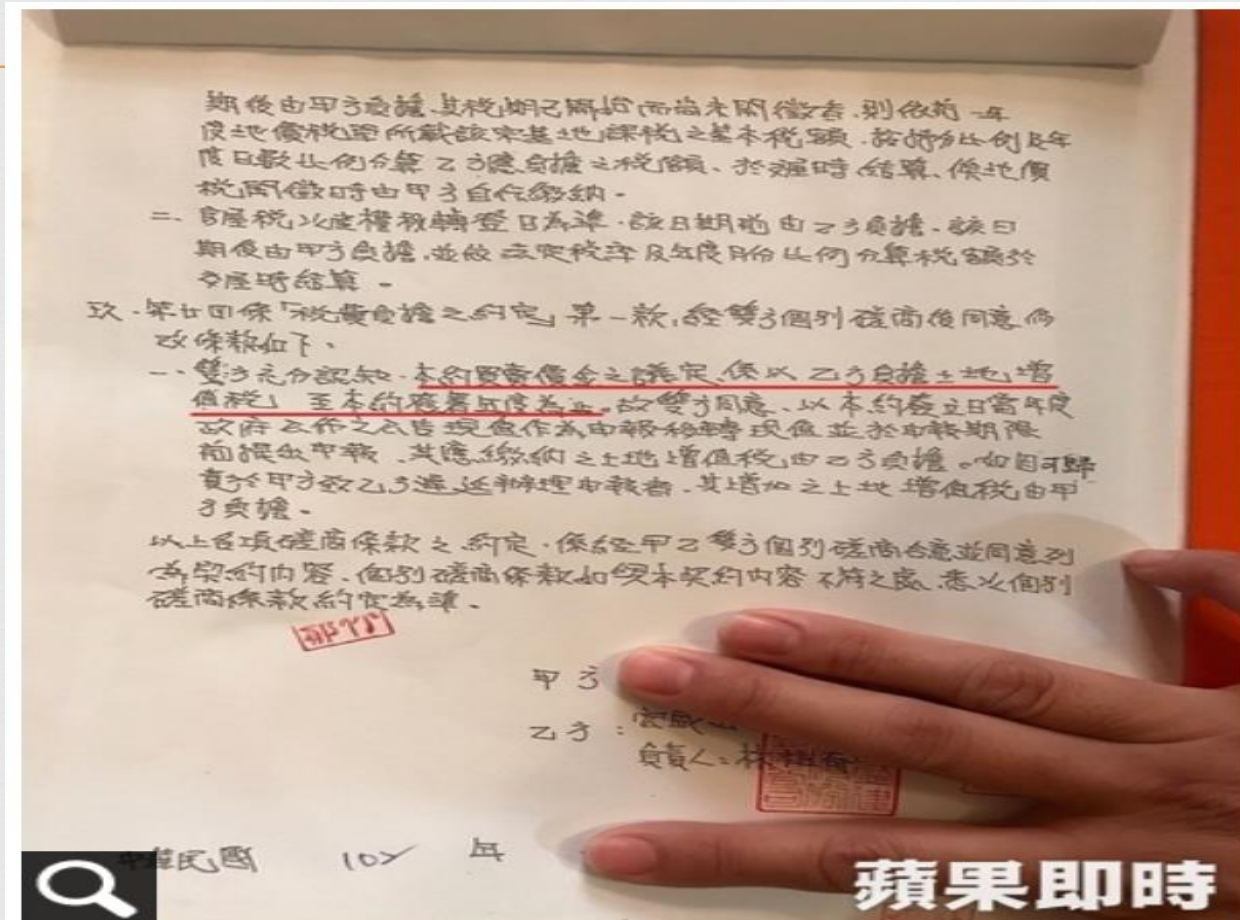 期後由甲方負擔。其稅期已開始而尚未開徵者,則依前一年
度地價稅單所載該宗基地課稅之基本稅額,按持分比例及年
度日數比例分算乙方應負擔之稅額,於交屋時結算,俟地價
稅開徵時由甲方自行繳納。
二、房屋稅以產權移轉登日為準,該日期前由乙方負擔,該日
期後由甲方負擔,並依法定稅率及年度月份比例分算稅額於
交屋時結算。
玖、第廿四條「稅費負擔之約定」第一款,經雙方個別磋商後同意修
改條款如下。
一、雙方充分認知,本約買賣價金之議定,係以乙方負擔土地增
值稅,至本約簽署年度為止。故雙方同意,以本約簽立日當年度
政府公佈之公告現值作為申報移轉現值並於申報期限
前提出申報,其應繳納之土地增值稅由乙方負擔。如因可歸
責於甲方致乙方遲延辦理申報者,其增加之土地增值稅由甲
方負擔。
以上各項磋商條款之約定,係經甲乙雙方個別磋商合意並同意列
為契約內容,個別磋商條款如與本契約內容不符之處,悉以個別
磋商條款約定為準。
甲方
乙方:
負責人:林
中華民國 102 年
蘋果即時